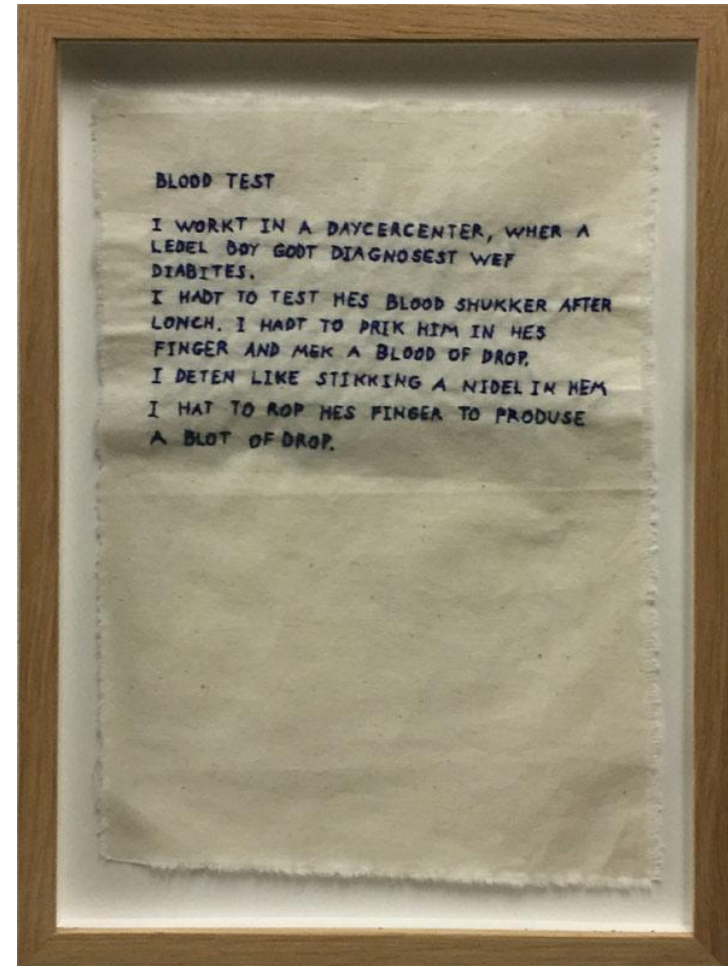 BLOOD TEST
I WORKT IN A DAYCERCENTER, WHER A
LEDEL BOY GODT DIAGNOSEST WEF
DIABITES.
I HADT TO TEST HES BLOOD SHUKKER AFTER
LONCH. I HADT TO PRIK HIM IN HES
FINGER AND MEK A BLOOD OF DROP.
I DETEN LIKE STIKKING A NIDEL IN HEM
I HAT TO ROP HES FINGER TO PRODUSE
A BLOT OF DROP.